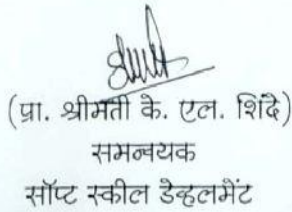 (प्रा. श्रीमती के. एल. शिंदे)
समन्वयक
सॉप्ट स्कील डेव्हलमेंट